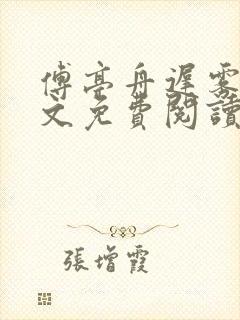 傅亭舟遲霧
文免費閱讀
張增霞